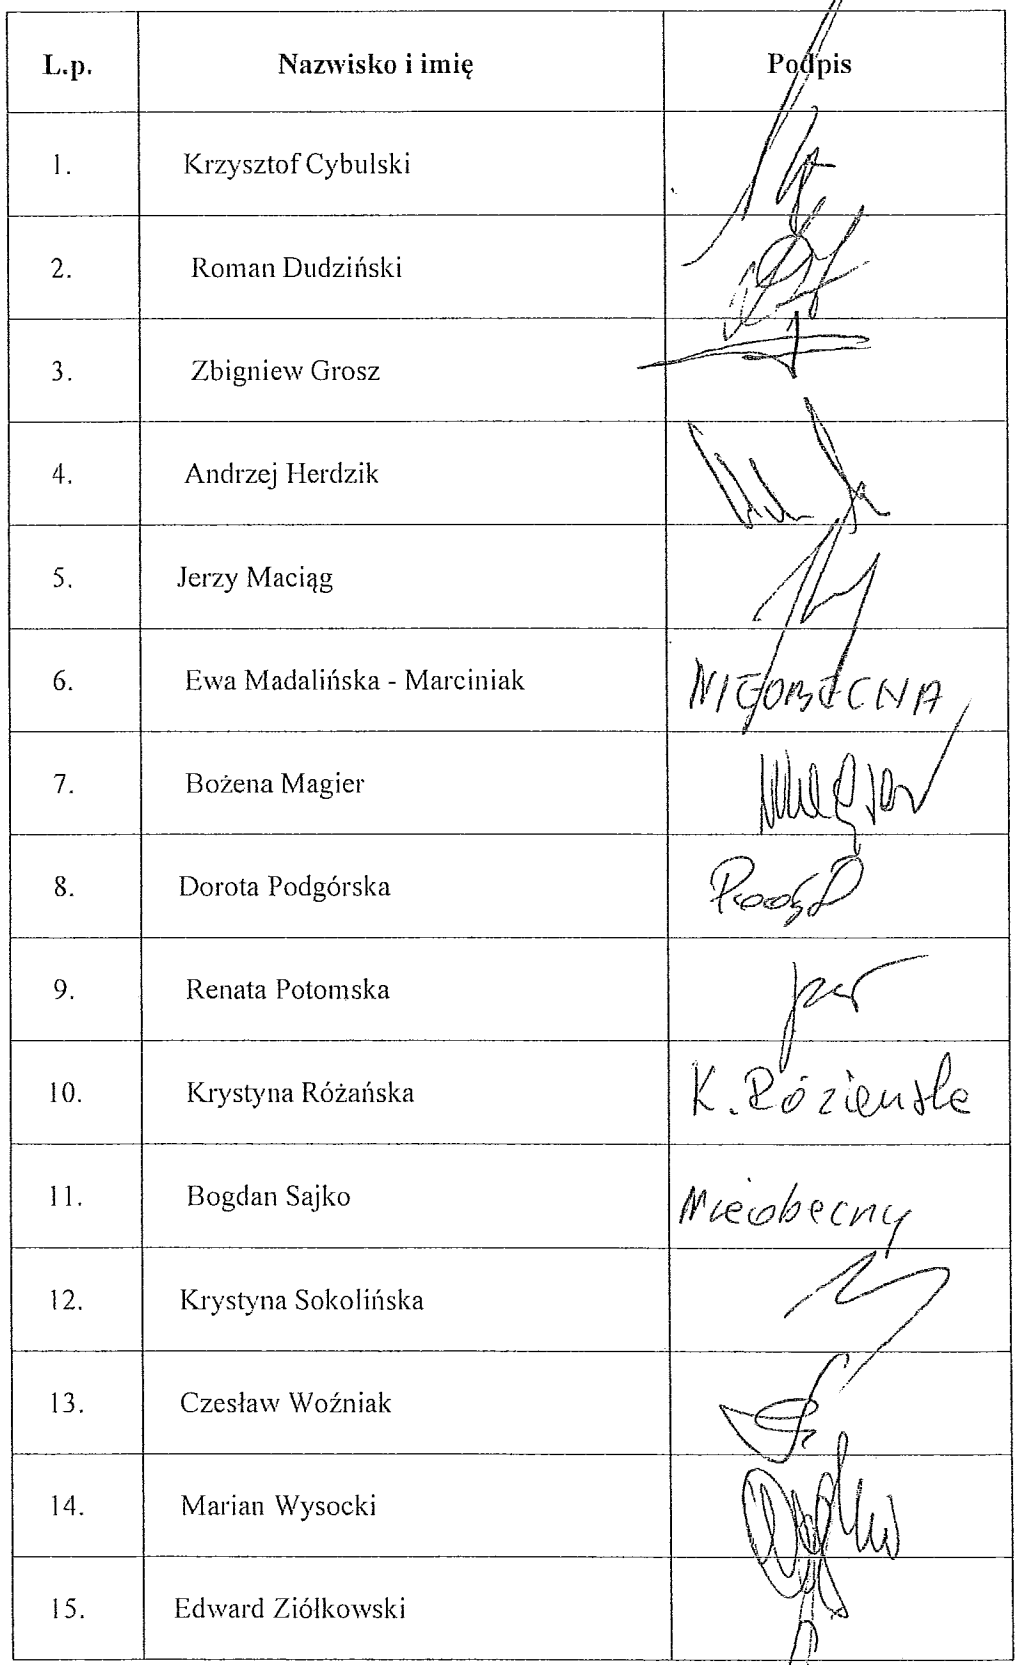 L.p. Nazwisko i imię Podpis
1. Krzysztof Cybulski
2. Roman Dudziński
3. Zbigniew Grosz
4. Andrzej Herdzik
5. Jerzy Maciąg
6. Ewa Madalińska - Marciniak NIEOBECNA
7. Bożena Magier
8. Dorota Podgórska
9. Renata Potomska
10. Krystyna Różańska K. Różańska
11. Bogdan Sajko Nieobecny
12. Krystyna Sokolińska
13. Czesław Woźniak
14. Marian Wysocki
15. Edward Ziółkowski